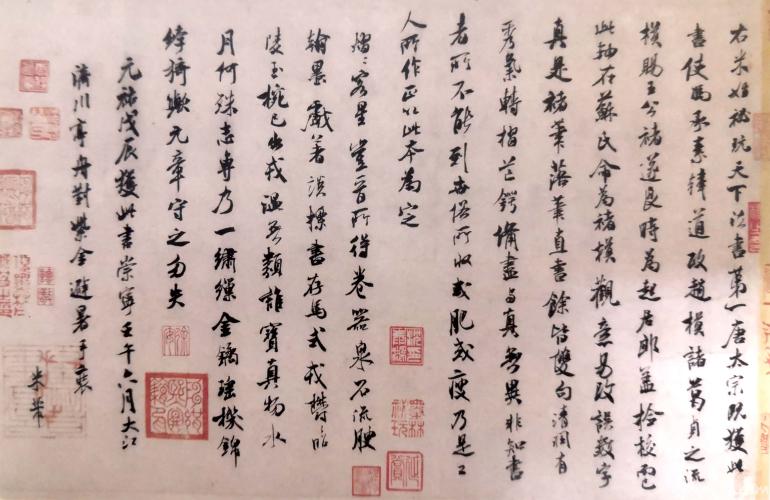 右米姓秘玩天下法書第一唐太宗既獲此
書使馮承素韓道政趙模諸葛貞之流
模賜王公褚遂良時為起居郎蓋檢校而已
此軸在蘇氏命為褚模觀意易改誤數字
真是褚筆落筆直書餘皆雙勾清潤有
秀氣轉摺芒鍔備盡與真無異非知書
者所不能到世俗所收或肥或瘦乃是工
人所作正以此本為定
熠〻客星豈晉所得卷器泉石流腴
翰墨戲著談標書存馬式欝昭
陵玉椀已出戎溫無類誰寶真物水
月何殊志專乃一繡繅金鐍瑤機錦
綍猗歟元章守之勿失
元祐戊辰獲此書崇寧壬午六月大江
濟川亭舟對紫金避暑手裝
米芾